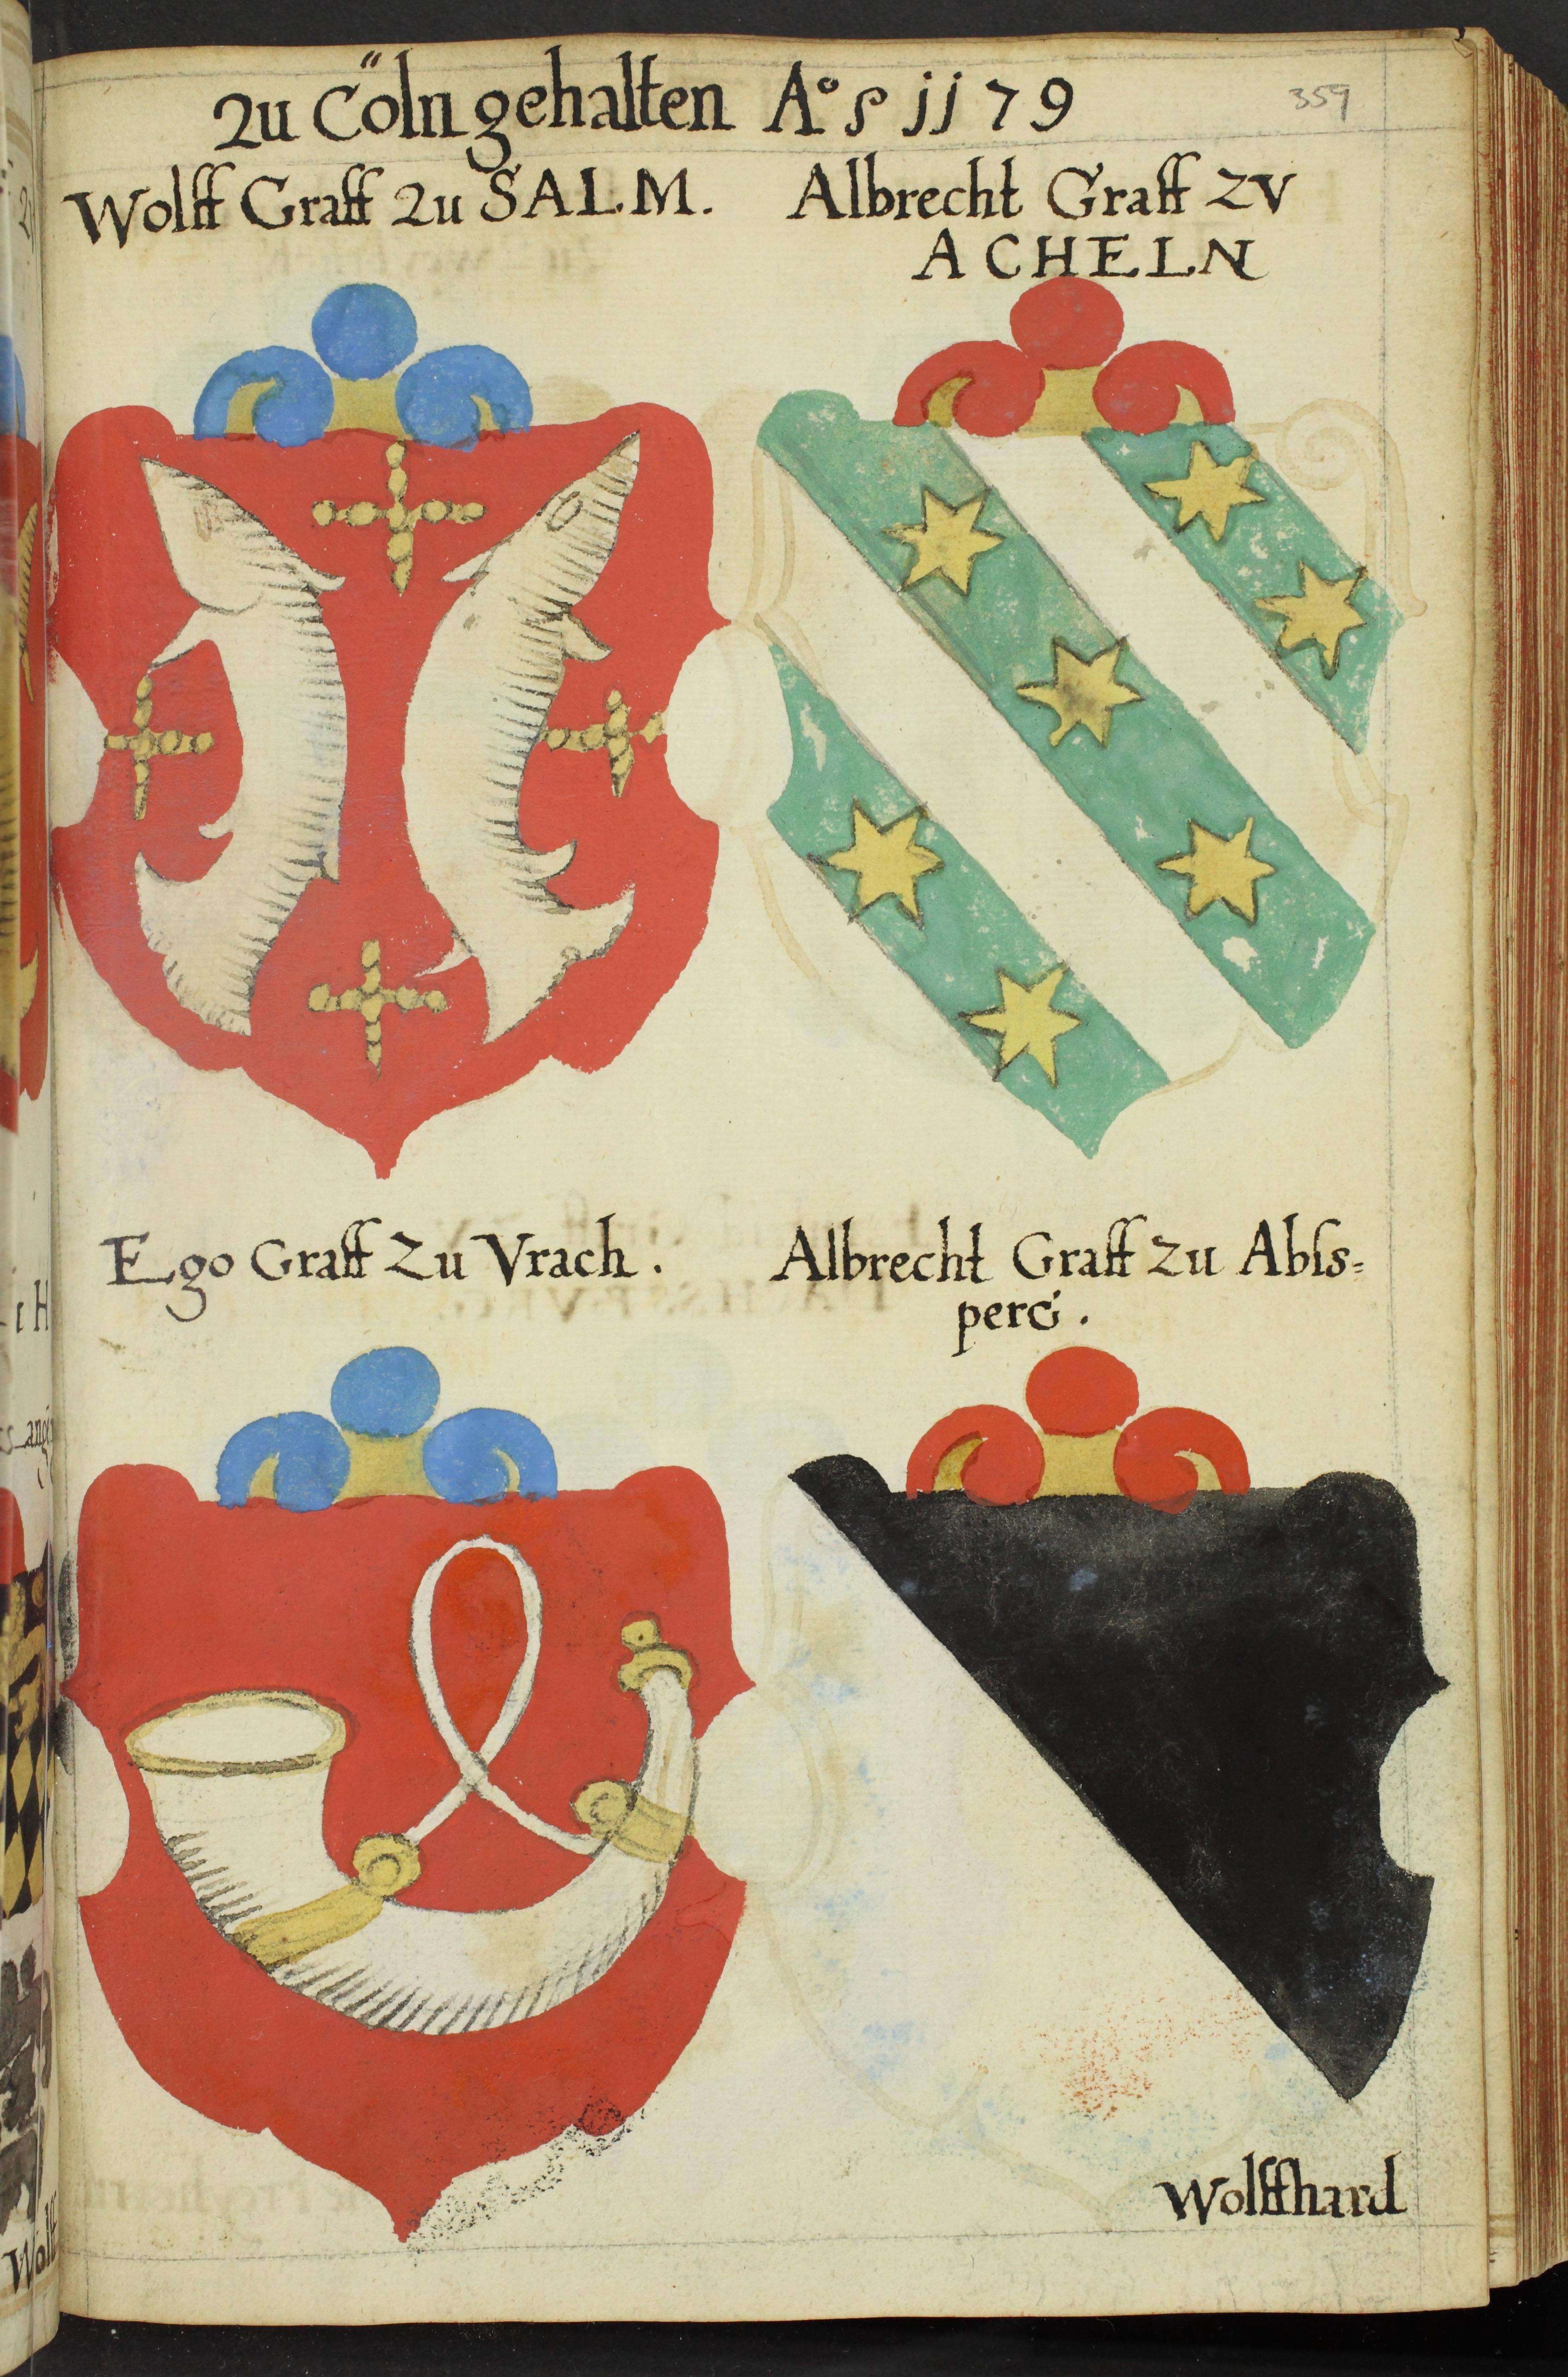 Zu Cöln gehalten Aº ſ jj79
359
Wolff Graff Zu SALM.
Albrecht Graff ZV
ACHELN
Ego Graff Zu Vrach.
Albrecht Graff zu Abſs=
perG.
Wolffhard